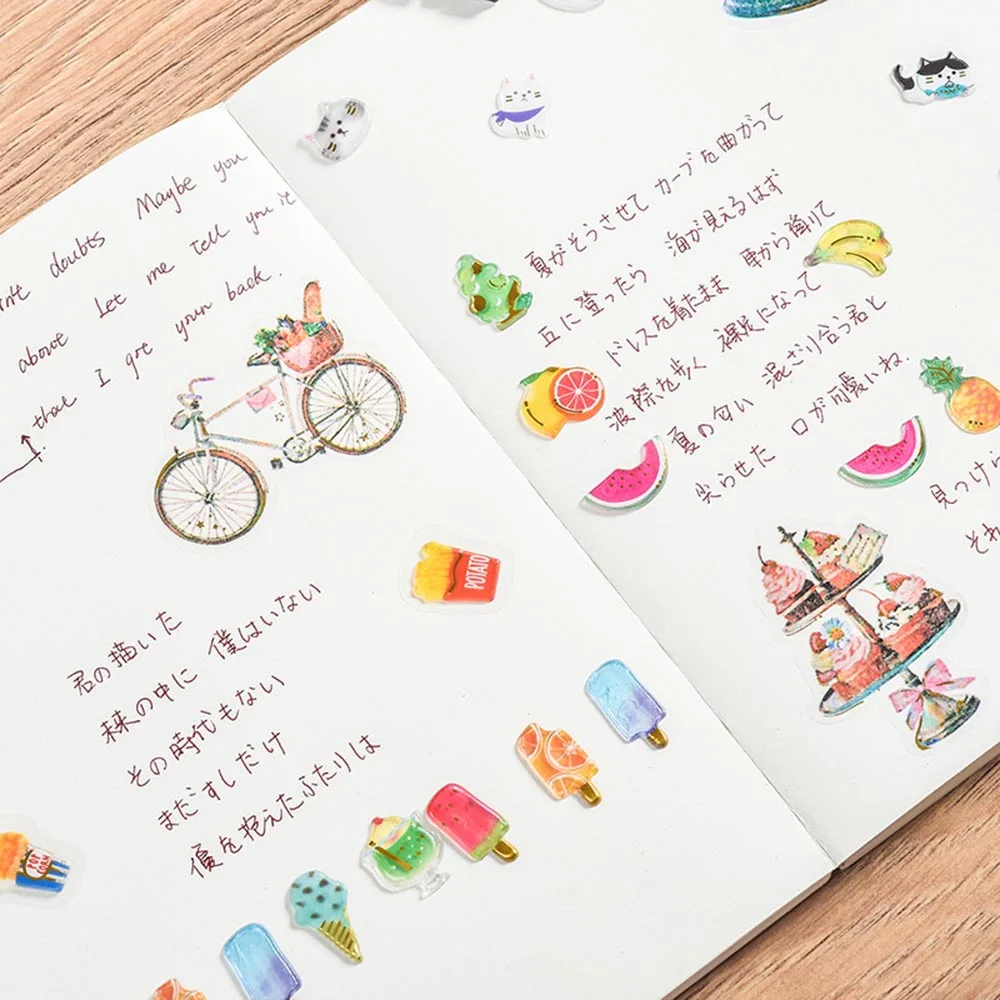 Maybe you
doubts
above Let me tell you it
that I got your back.
君の描いた
未来の中に 僕はいない
その時代もない
まだすしだけ
傷を抱えたふたりは
POTATO
POP CORN
夏がそうさせて カーブを曲がって
丘に登ったら 海が見えるはず
ドレスを着たまま 車から降りて
波際を歩く 裸足になって
夏の匂い 混ざり合う君と
尖らせた 口が可愛いね.
見つけら
それ